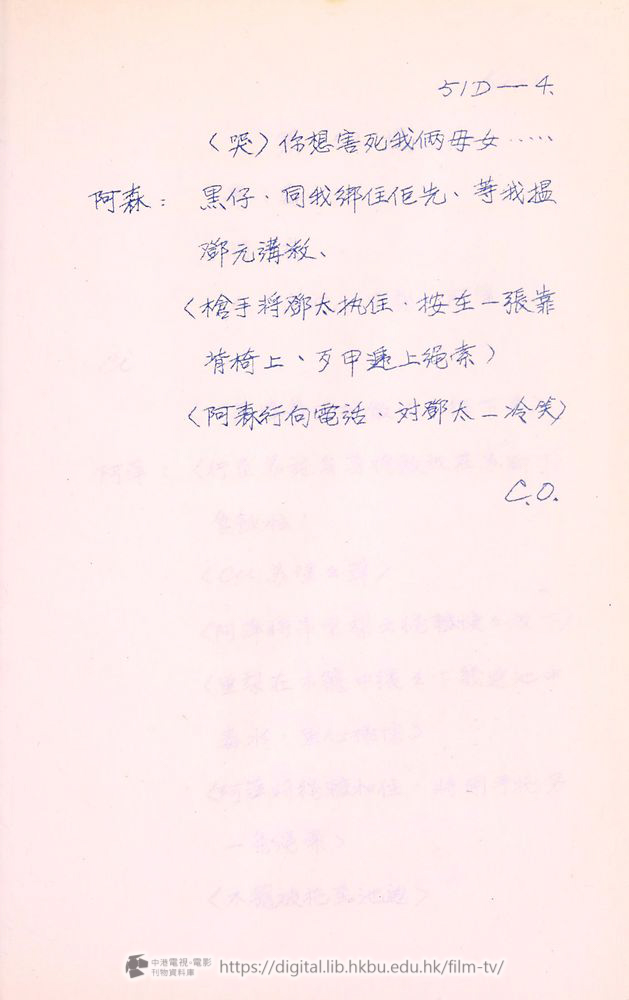 51D — 4.
（哭）你想害死我俩母女……
阿森： 黑仔、同我绑住佢先、等我搵
鄧元講数、
（槍手将鄧太执住、按在一張靠
背椅上、歹甲遞上绳索）
（阿森行向電話、对鄧太一冷笑）
C.O.
中港電視·電影
刊物資料庫
https://digital.lib.hkbu.edu.hk/film-tv/